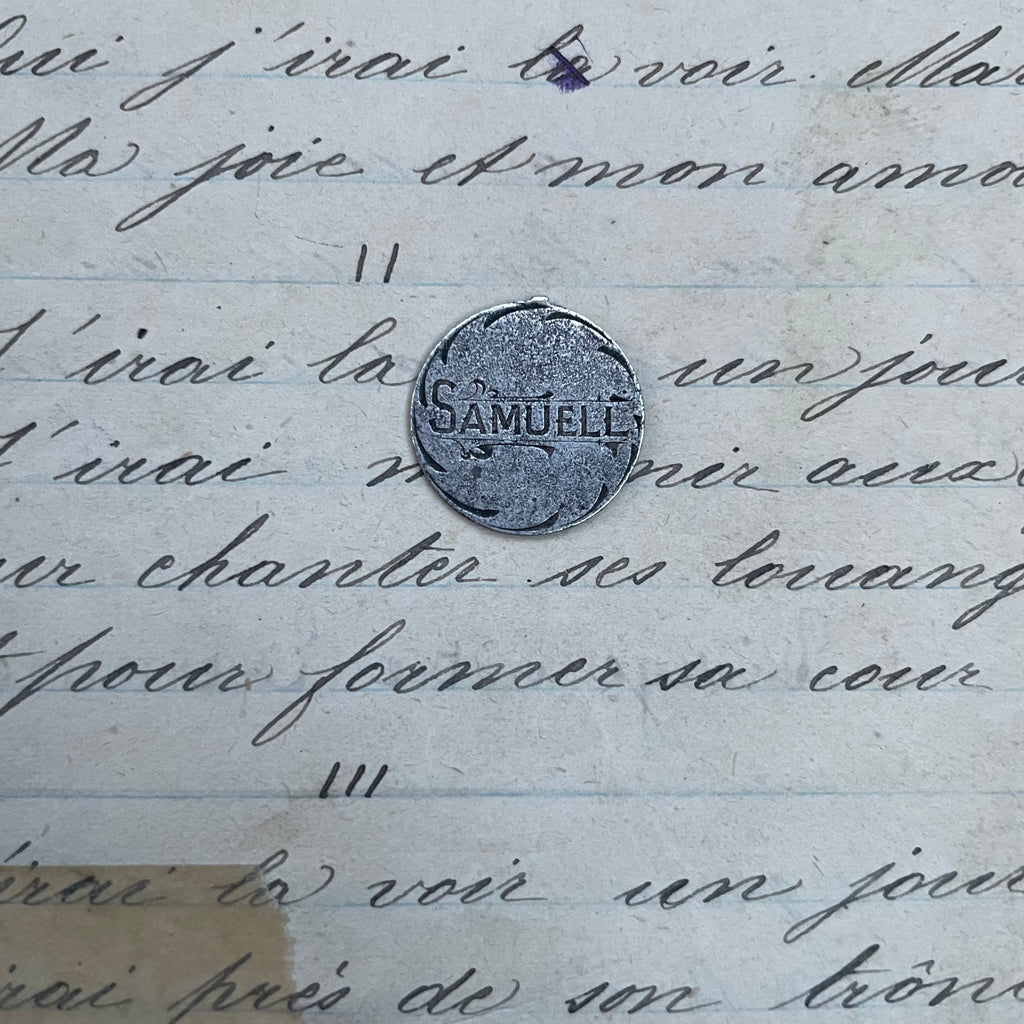 Oui j'irai la voir. Ma
Ma joie et mon amou
II
J'irai la un jour
J'irai m nir aux
ur chanter ses louang
t pour former sa cour
III
'irai la voir un jour
irai près de son trône
SAMUELL